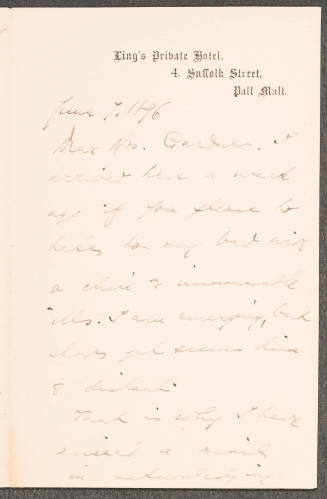 Ling's Private Hotel,
4. Suffolk Street,
Pall Mall.
June 7. 1896
Dear Mrs. Gardner. I
arrived here a week
ago if you please to
take to my bed with
a chill & innumerable
ills. I am emerging, but
yet seems dim
& distant.
That is why I have
missed a mail
in acknowledging